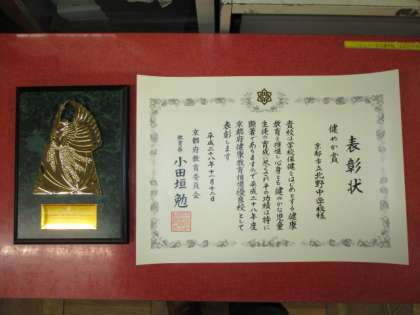 表彰状
健やか賞
京都市立北野中学校様
貴校は学校保健をはじめとする健康
教育を推進し心身ともに健やかな児童
生徒の育成に尽くされその功績は特に
顕著でありますので平成二十八年度
京都府健康教育推進優良校として
表彰します
平成二十八年十一月十二日
京都府教育委員会
教育長 小田垣 勉